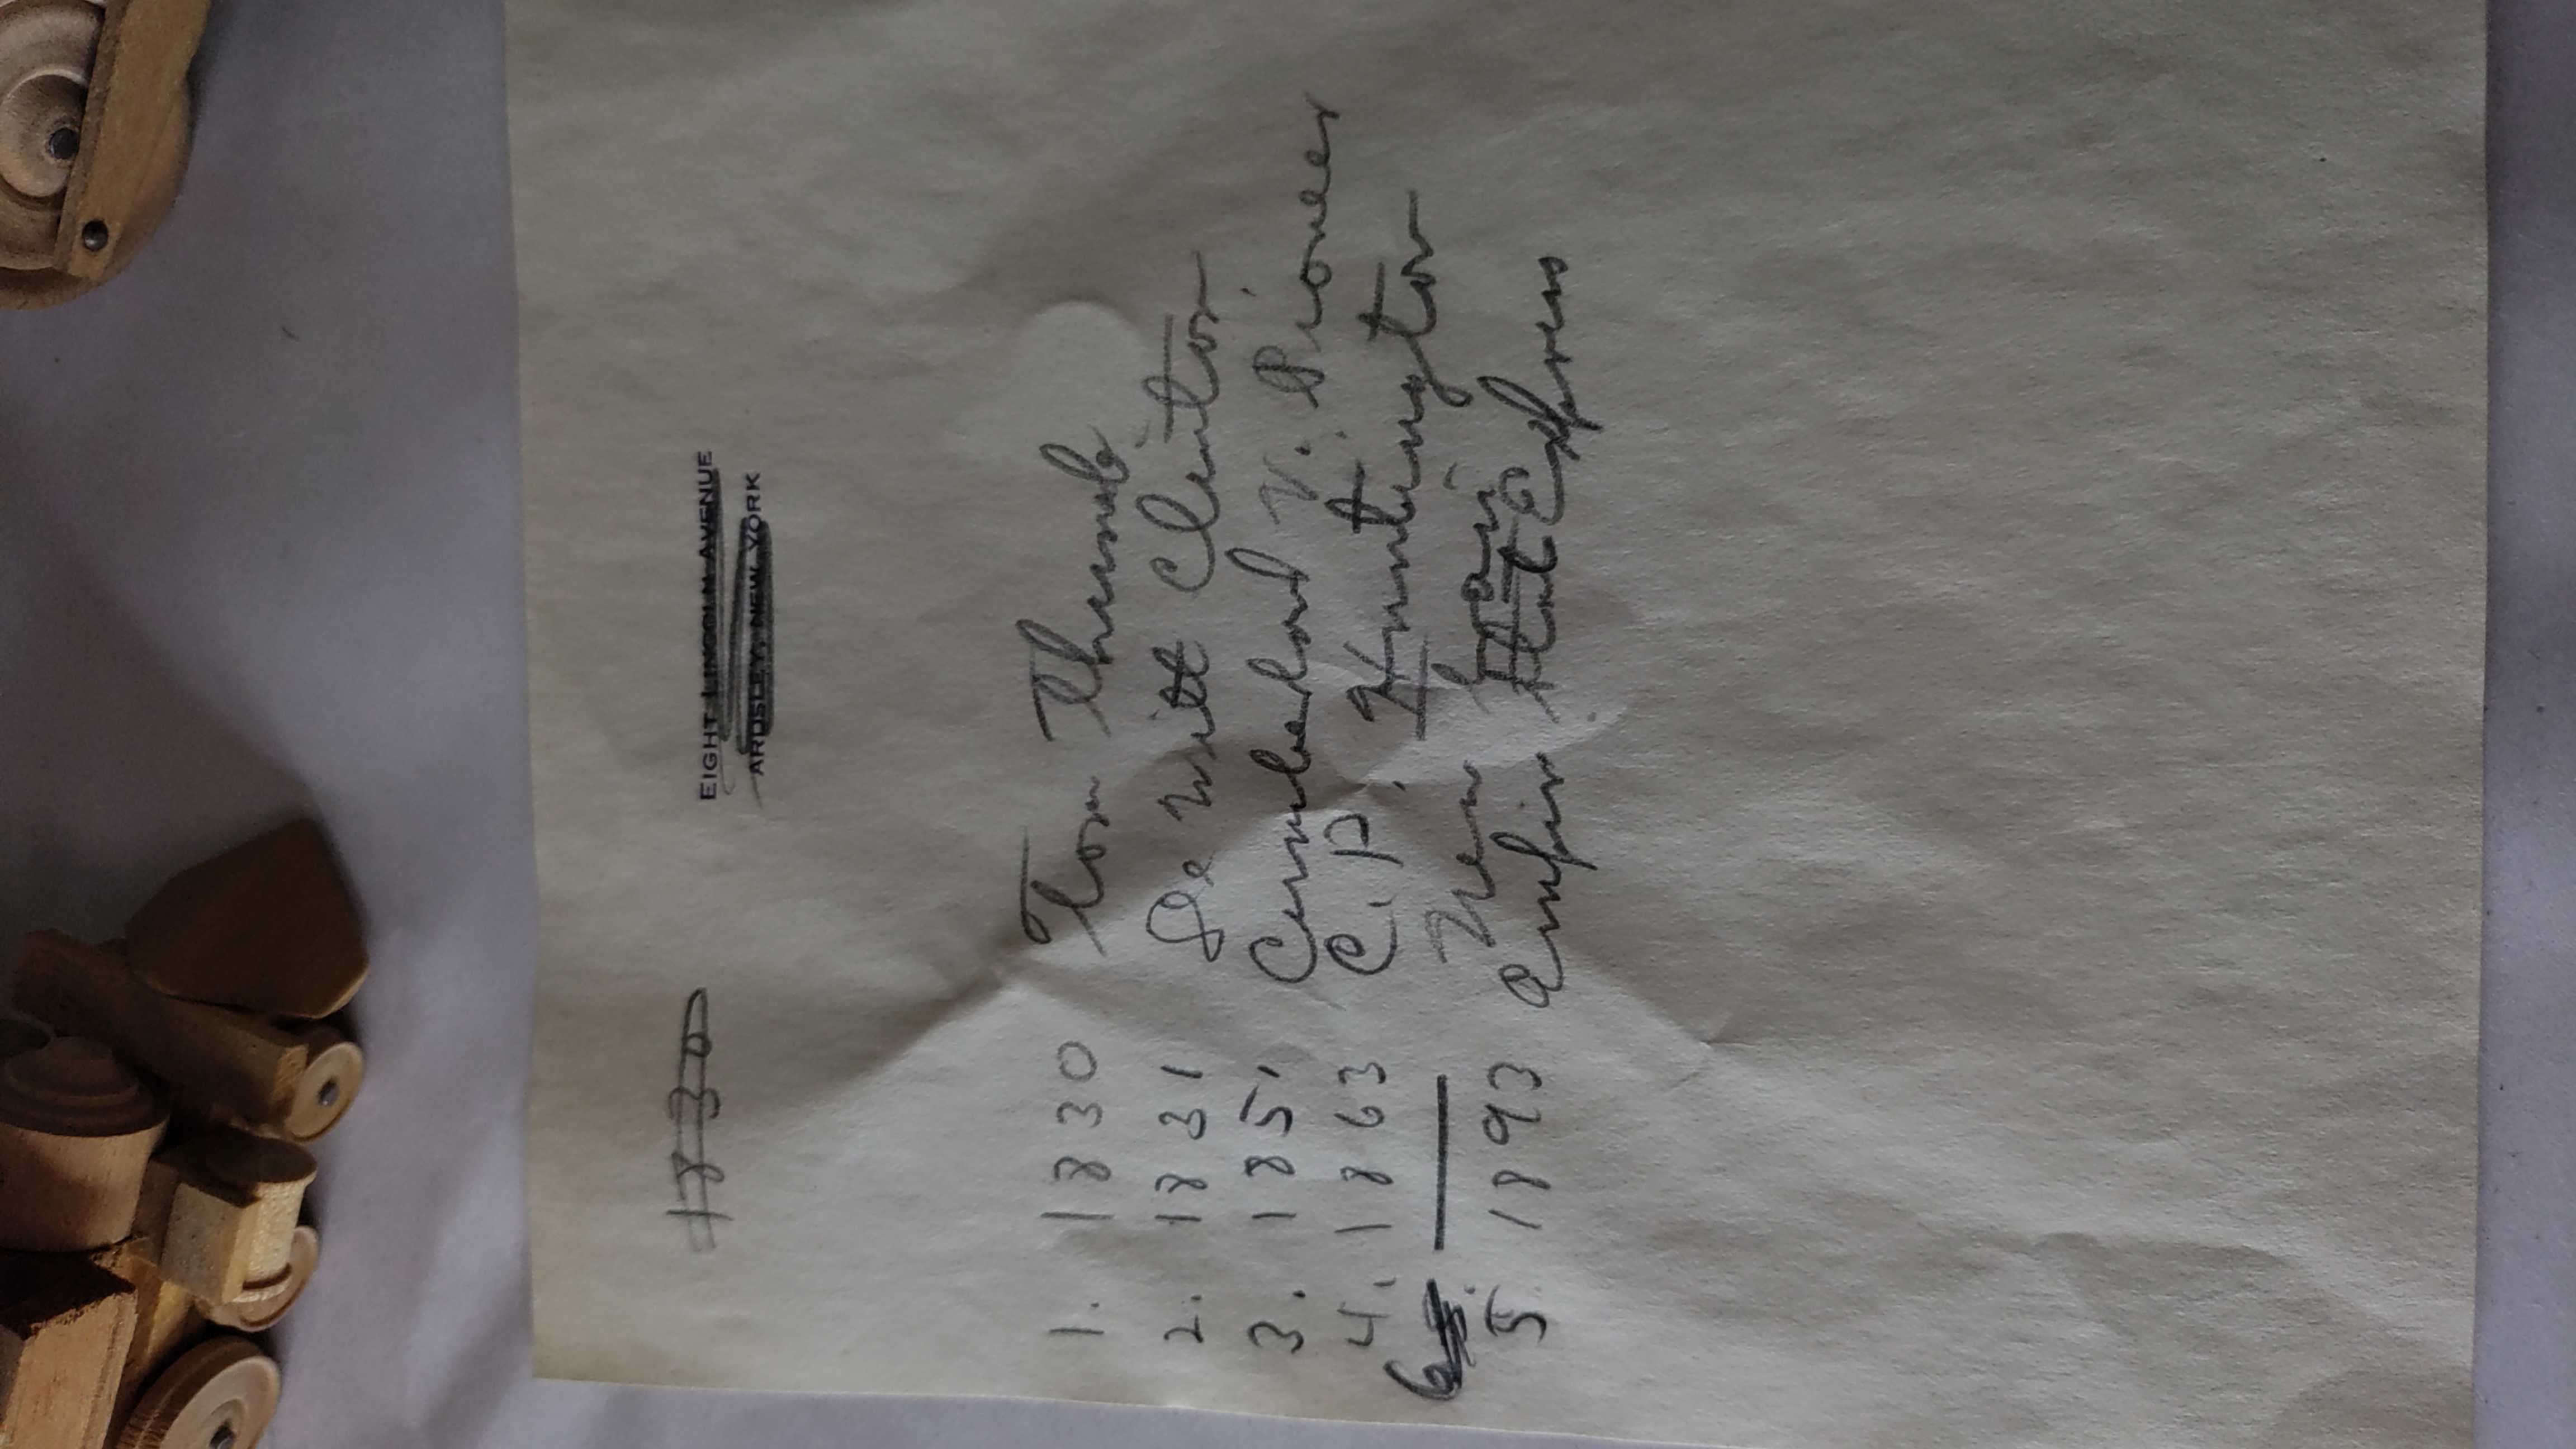 EIGHT LINCOLN AVENUE
ARDSLEY, NEW YORK
1830
1. 1830 Tom Thumb
2. 1831 De Witt Clinton
3. 1851 Cumberland V. Pioneer
4. 1863 C. P. Huntington
6 — New
5. 1893 Empire State Express